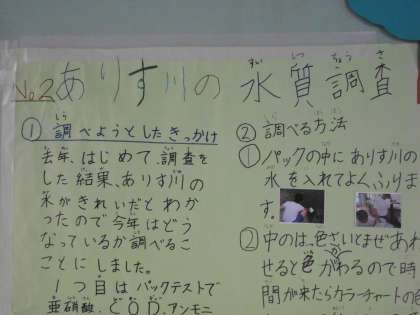 No.2 ありす川の水質調査
① 調べようとしたきっかけ
去年、はじめて、調査を
した結果、ありす川の
水がきれいだとわか
ったので今年はどう
なっているか調べるこ
ことにしました。
1つ目はパックテストで
亜硝酸、COD、アンモニ
② 調べる方法
① パックの中にありす川の
水を入れてよくふりま
す。
② 中のは、色ざいとまぜあわ
せると色がわるので時
間が来たらカラーチャートの